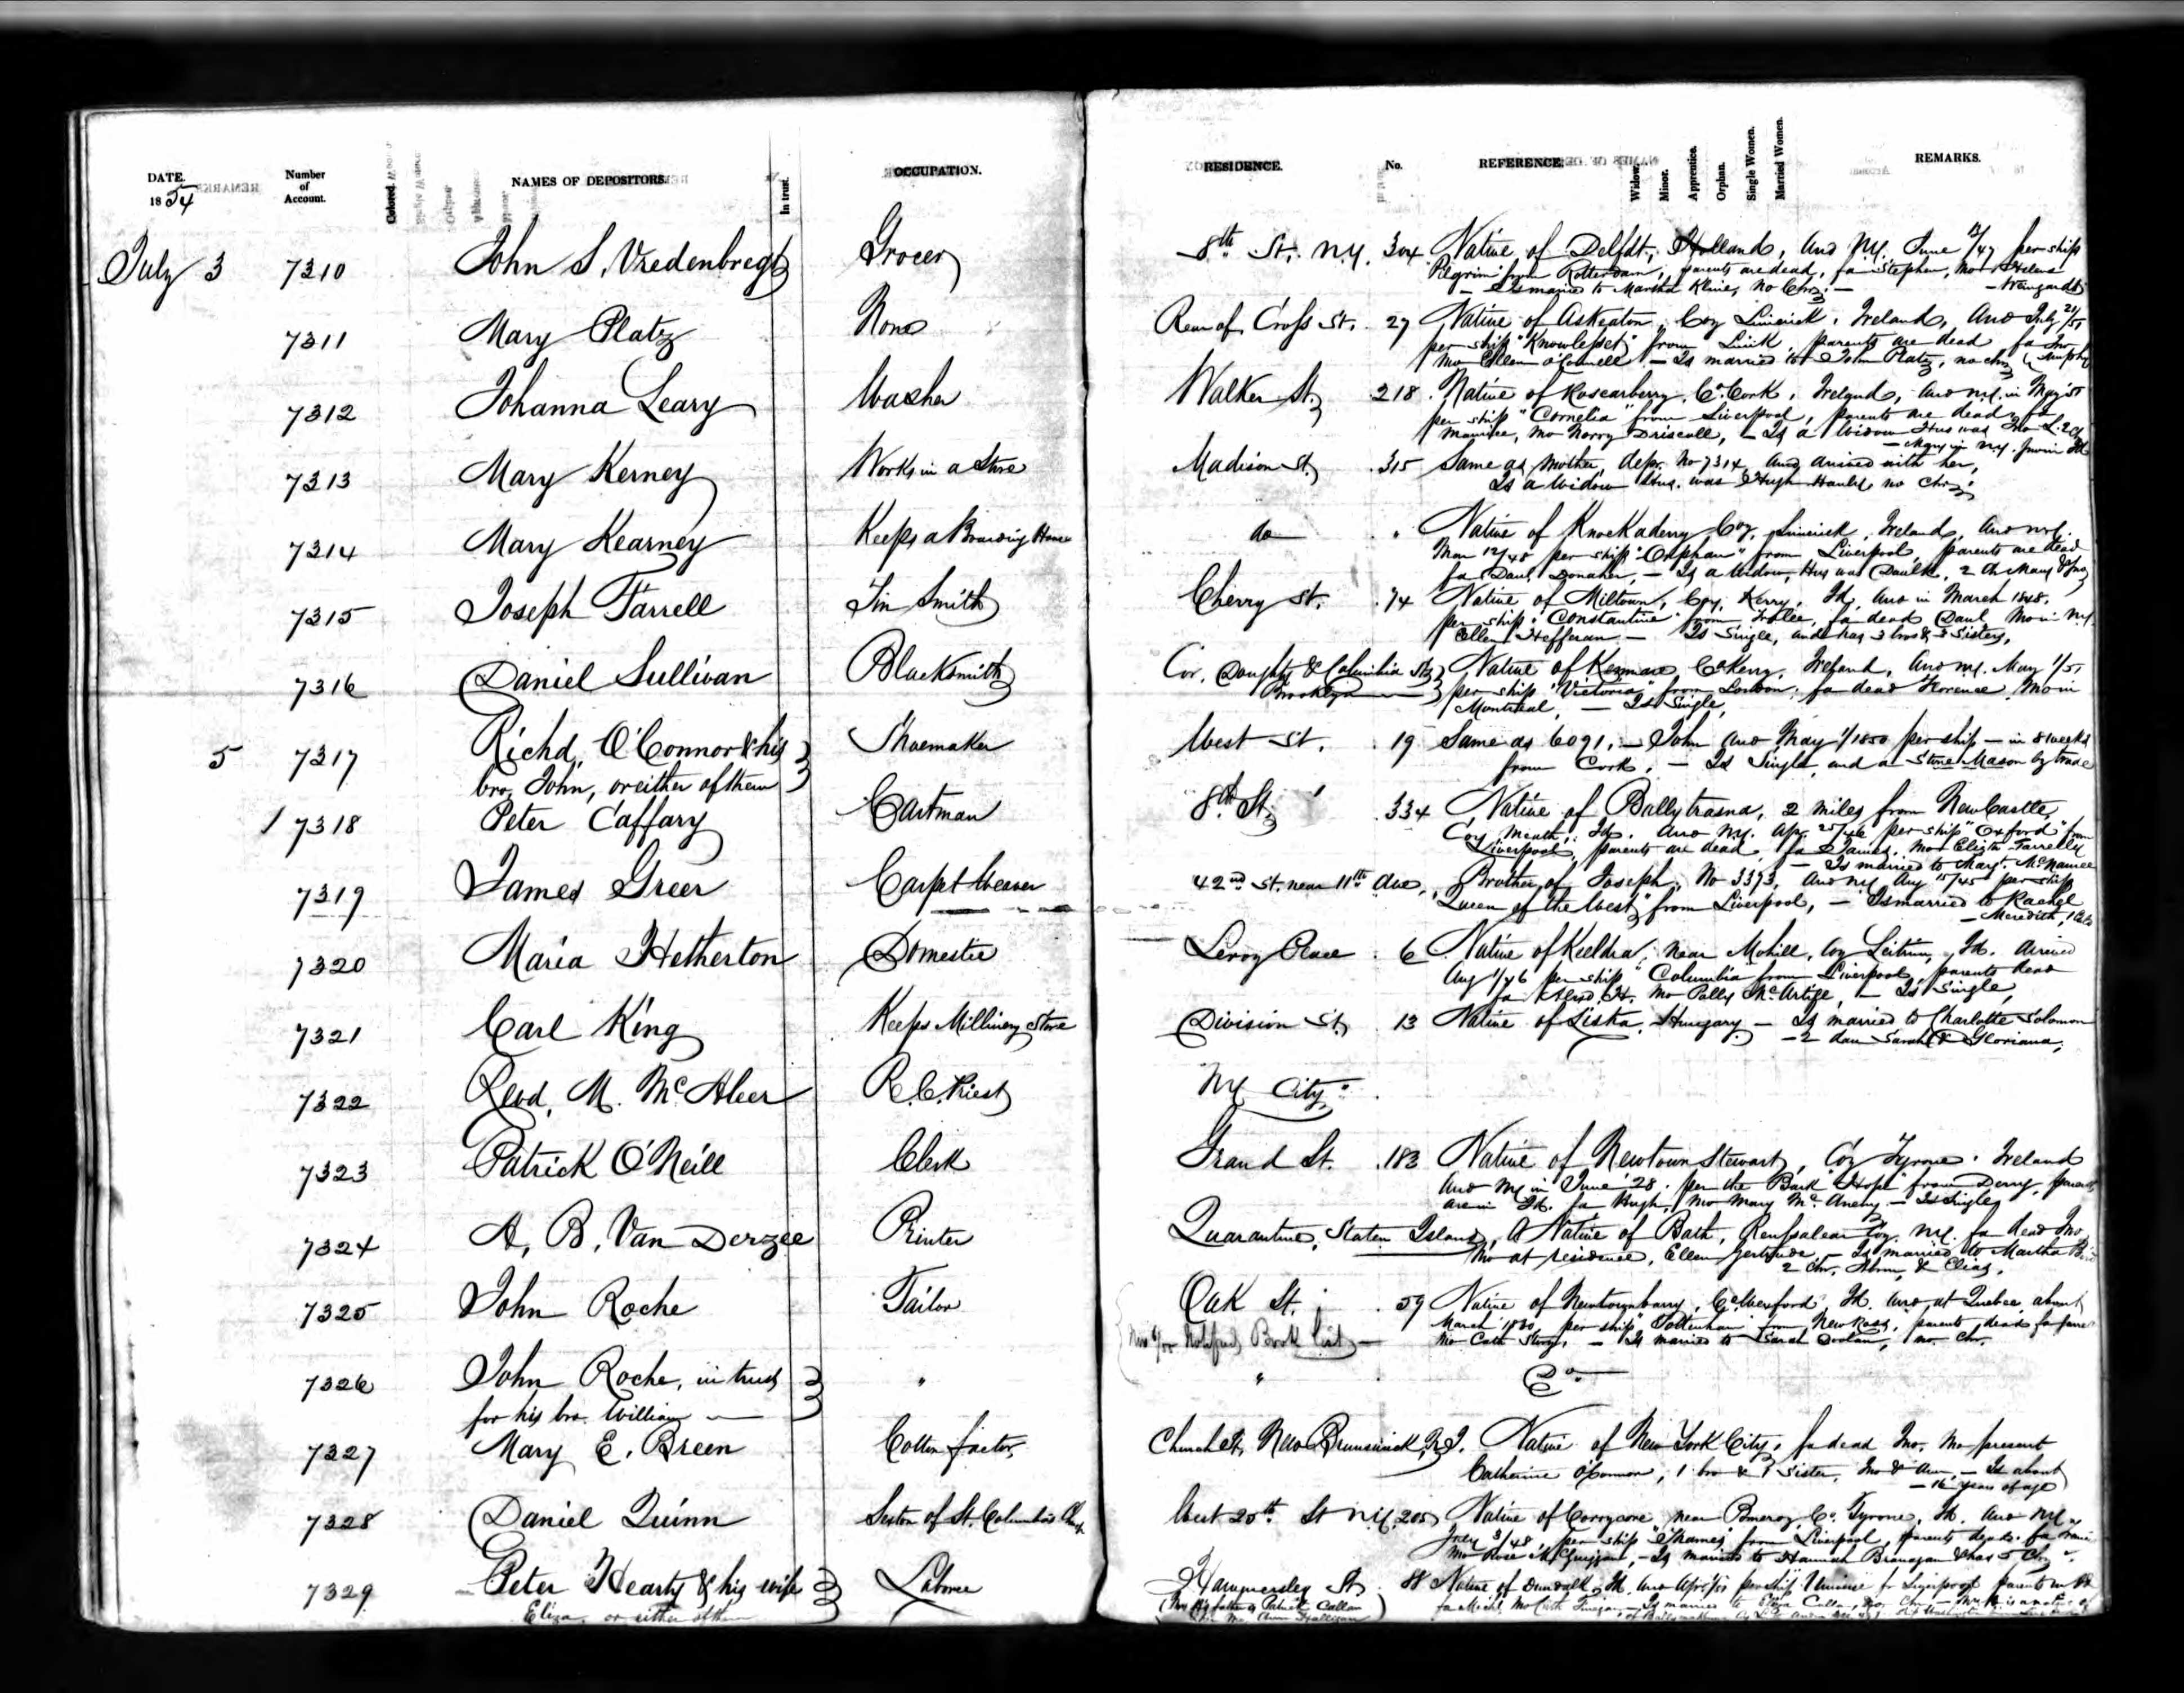 DATE. Number of Account. Colored. NAMES OF DEPOSITORS. In trust. OCCUPATION. RESIDENCE. No. REFERENCE. Widow. Minor. Apprentice. Orphan. Single Women. Married Women. REMARKS.
1854
July 3 7310 John S. Vredenbregt Grocer 8th St. N.Y. 304 Native of Delfdt, Holland, Arvd N.Y. June 12/47 per ship
Pilgrim from Rotterdam, parents are dead, fa Stephen, Mo Helena
— Is married to Martha Kline, no Chn; — Weingardt
7311 Mary Platz None Rear of Cross St. 27 Native of Askeaton, Coy Limerick, Ireland, Arvd July 21/51
per ship "Knowlesley" from Limk, parents are dead fa Jno Murphy
Mo Ellen O'Connell — Is married to John Platz, no chn
7312 Johanna Leary Washer Walker St. 218 Native of Roscarberry, Co. Cork, Ireland, Arvd N.Y. in May '51
per ship "Cornelia" from Liverpool, parents are dead, fa
Maurice, Mo Norry Driscoll, — Is a Widow Hus was Jno L. 2 Ch
— Mary in N.Y. Jno in Id
7313 Mary Kerney Works in a Store Madison St. 315 Same as mother, depr. No 7314 and arrived with her,
Is a Widow Hus. was Hugh Hanley no Chn;
7314 Mary Kearney Keeps a Boarding House do " Native of Knockaderry Coy. Limerick, Ireland, Arvd N.Y.
Mar 12/48 per ship "Orphan" from Liverpool, parents are dead
fa Danl Donaher, — Is a Widow, Hus was Danl K. 2 Ch Mary & Jno
7315 Joseph Farrell Tin Smith Cherry St. 74 Native of Miltown, Coy. Kerry, Id, Arvd in March 1848,
per ship "Constantine" from Tralee, fa dead Danl Mo in N.Y.
Ellen Heffernan — Is Single, and has 3 bros & 3 Sisters,
7316 Daniel Sullivan Blacksmith Cor. Doughty & Columbia Sts Native of Kenmare Co Kerry, Ireland, Arvd N.Y. May 1/51
Brooklyn per ship "Victoria" from London, fa dead Florence Mo in
Montreal, — Is Single,
5 7317 Richd. O'Connor & his Shoemaker West St. 19 Same as 6091, — John Arvd May 1/1850 per ship — in 8 weeks
bro. John, or either of them from Cork, — Is Single, and a Stone Mason by trade
/ 7318 Peter Caffary Cartman 8th St. 334 Native of Ballytrasna, 2 miles from NewCastle,
Coy Meath, Id. Arvd N.Y. Apr 25/46 per ship "Oxford" from
Liverpool, parents are dead, fa James, Mo Elizth Farrelly
— Is married to Margt. McNamee
7319 James Greer Carpet Weaver 42nd St. near 11th Ave, Brother of Joseph, No 3393, Arvd N.Y. Aug 15/45 per ship
Queen of the West, from Liverpool, — Is married to Rachel
— Meredith, 1 Ch
7320 Maria Hetherton Domestic Leroy Place 6 Native of Keeldra, near Mohill, Coy Leitrim, Id. Arrived
Aug 1/46 per ship "Columbia from Liverpool, parents dead
fa Alexd. H. Mo Polly McArtife, — Is Single,
7321 Carl King Keeps Millinery Store Division St. 13 Native of Liska, Hungary — Is married to Charlotte Solomon
— 2 dau Sarah & Gloriana,
7322 Revd. M. McAleer R.C. Priest N.Y. City
7323 Patrick O'Neill Clerk Grand St. 183 Native of Newtown Stewart, Coy Tyrone, Ireland
Arvd N.Y. in June '28. per the Bark "Hope" from Derry, parents
are in Id. fa Hugh, Mo Mary McAneny — Is Single
7324 A. B. Van Derzee Printer Quarantine, Staten Island, A Native of Bath, Renssalear Coy. N.Y. fa dead Jno,
Mo at residence, Ellen Gertrude, — Is married to Martha
2 Chn, Abrm. & Eliza,
7325 John Roche Tailor Oak St. 59 Native of Newtownbarry, Co. Wexford, Id. Arvd at Quebec about
March 1830, per ship "Tottenham" from New Ross, parents dead fa James
Notified, Book Lost — Mo Cath Story, — Is married to Sarah Doolan, no Chn.
7326 John Roche, in trust " " Do
for his bro. William —
7327 Mary E. Breen Cotton factor Church St, New Brunswick, N.J. Native of New York City, fa dead Jno, Mo present
Catherine O'Connor, 1 bro & 1 Sister, Jno & Ann, — Is about
— 16 years of age
7328 Daniel Quinn Sexton of St. Columba's Chch West 25th St N.Y. 205 Native of Corrycone near Pomeroy Co. Tyrone, Id. Arvd N.Y.
July 3/48, per ship "Thames" from Liverpool, parents dead. fa
Mo Rose McGuiggan, — Is married to Hannah Branagan & has 5 Chn
7329 Peter Hearty & his wife Laborer Hammersley St. 88 Native of Dundalk, Id. Arvd Apr per ship Universe fr Liverpool parents in Id
Eliza or either of them fa Michl, Mo Cath Finegan, — Is married to Eliza Callan, no Chn, —
father is Patrick Callan
Mo. Ann Halligan